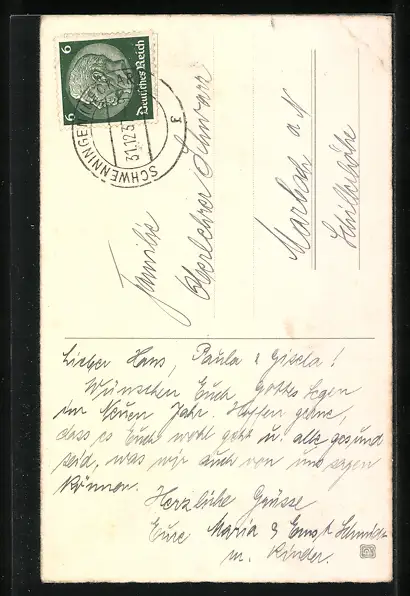 6 Deutsches Reich 6
SCHWENNINGEN
31.12.3
Familie
Oberlehrer Schwarz
Marbach a N
Schillerhöhe
Lieber Hans, Paula & Gisela!
Wünschen Euch Gottes Segen
im Neuen Jahr. Hoffen gerne,
dass es Euch wohl geht u. alle gesund
seid, was wir auch von uns sagen
können.
Herzliche Grüsse
Eure Maria & Ernst Schmidt
m. Kinder.